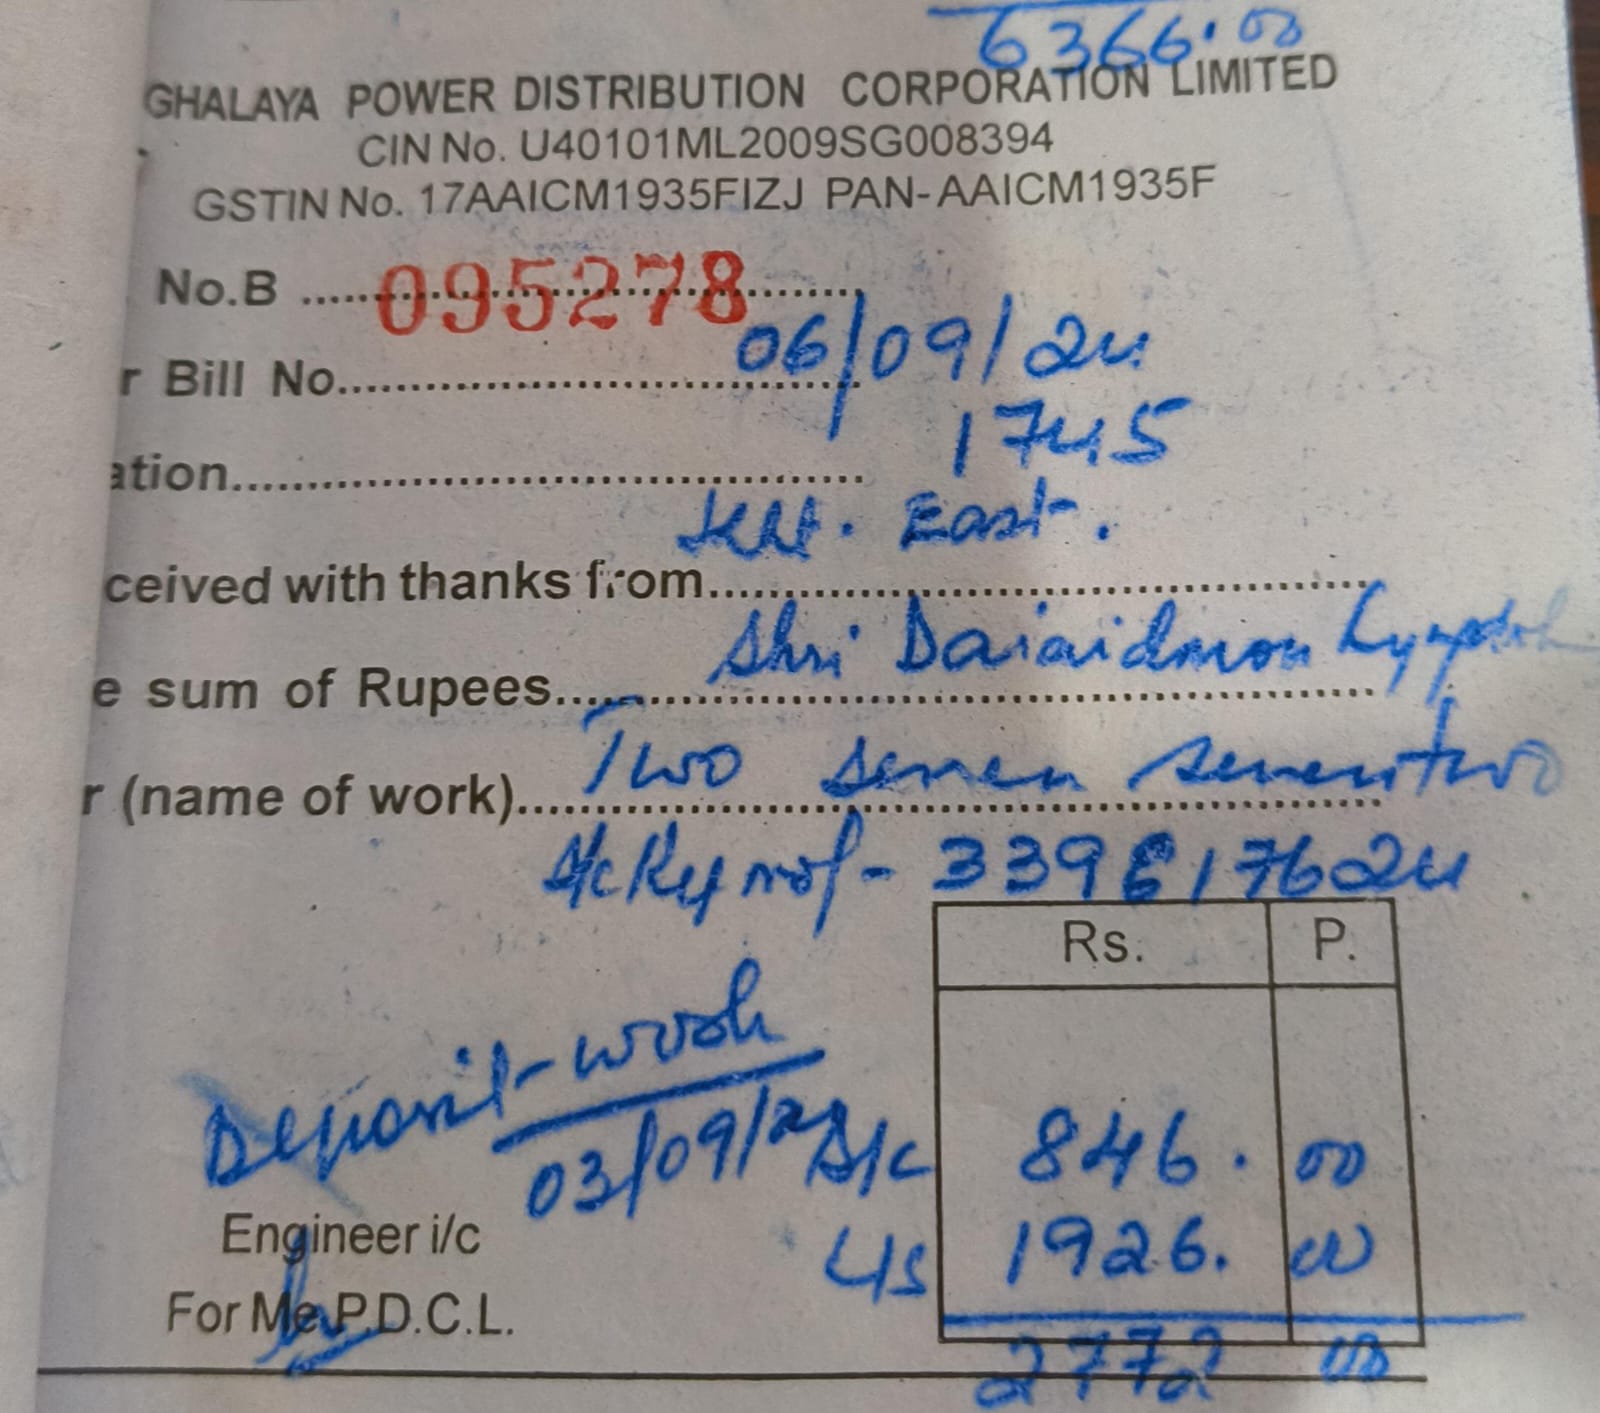 6366.00
GHALAYA POWER DISTRIBUTION CORPORATION LIMITED
CIN No. U40101ML2009SG008394
GSTIN No. 17AAICM1935FIZJ PAN-AAICM1935F
No.B 095278
06/09/24
r Bill No.
1745
ation
East.
ceived with thanks from
Shri Daiaidmon Lyngdoh
e sum of Rupees
Two seven seven two
r (name of work)
Rs. P.
Deposit-work
03/09/24
S/c 846. 00
Engineer i/c
1926. 00
For Me.P.D.C.L.
2772 00